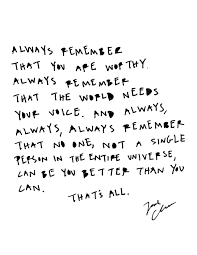 ALWAYS REMEMBER
THAT YOU ARE WORTHY.
ALWAYS REMEMBER
THAT THE WORLD NEEDS
YOUR VOICE. AND ALWAYS,
ALWAYS, ALWAYS REMEMBER
THAT NO ONE, NOT A SINGLE
PERSON IN THE ENTIRE UNIVERSE,
CAN BE YOU BETTER THAN YOU
CAN.
THAT'S ALL.